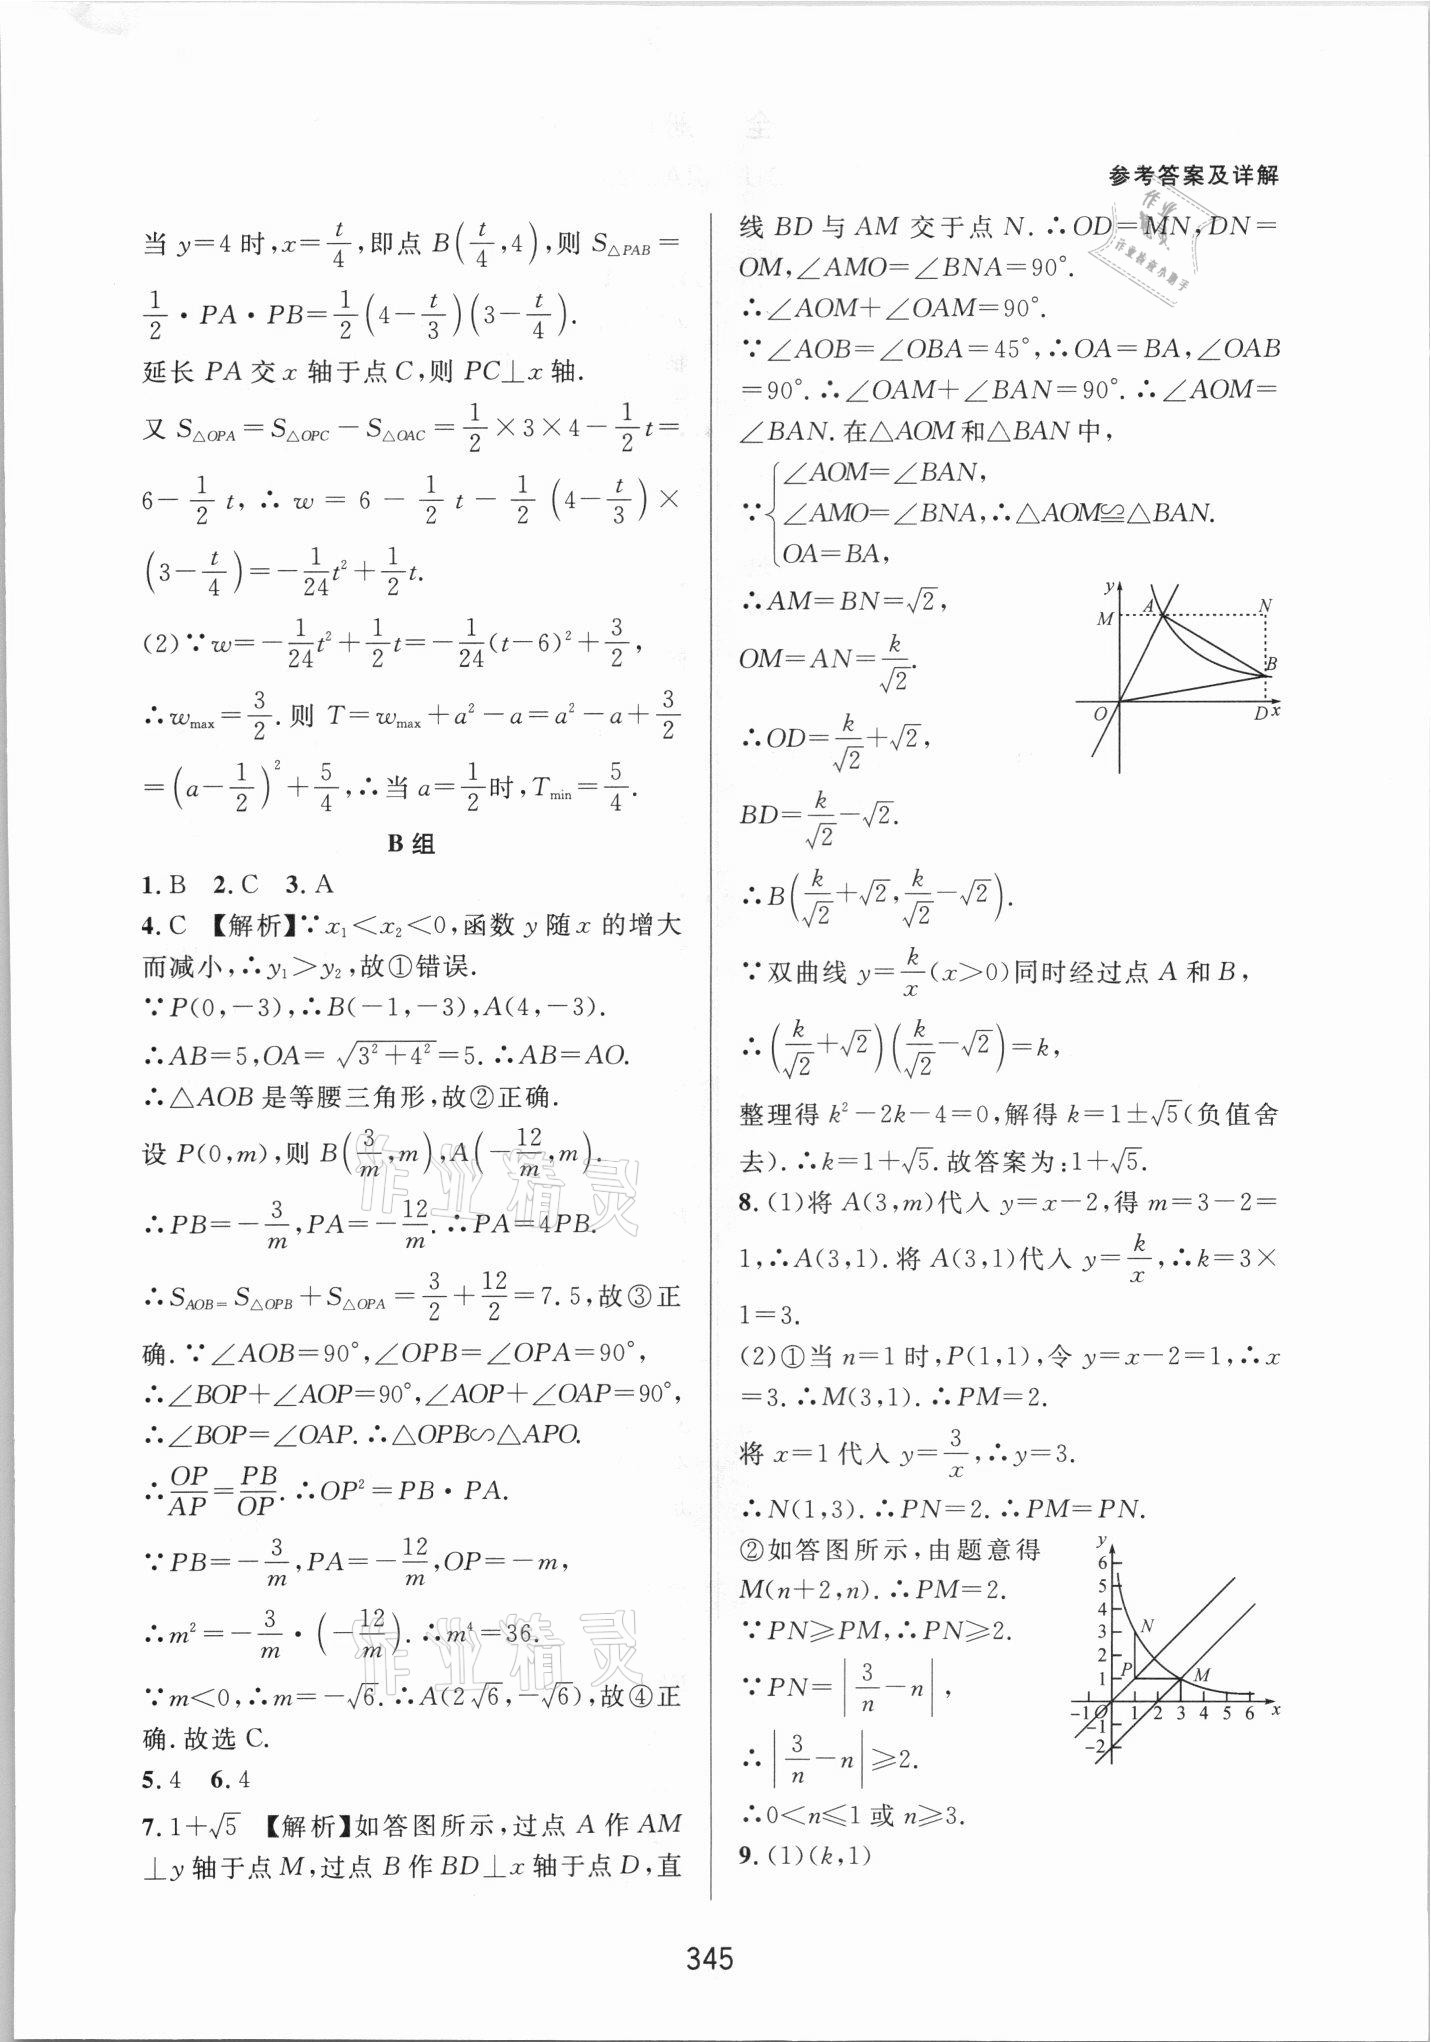 参考答案及详解
当 y=4 时,x=t/4,即点 B(t/4,4),则 S△PAB=
1/2·PA·PB=1/2(4-t/3)(3-t/4).
延长 PA 交 x 轴于点 C,则 PC⊥x 轴.
又 S△OPA=S△OPC-S△OAC=1/2×3×4-1/2t=
6-1/2t,∴w=6-1/2t-1/2(4-t/3)×
(3-t/4)=-1/24t²+1/2t.
(2)∵w=-1/24t²+1/2t=-1/24(t-6)²+3/2,
∴wmax=3/2.则 T=wmax+a²-a=a²-a+3/2
=(a-1/2)²+5/4,∴当 a=1/2时,Tmin=5/4.
B 组
1.B 2.C 3.A
4.C 【解析】∵x₁<x₂<0,函数 y 随 x 的增大
而减小,∴y₁>y₂,故①错误.
∵P(0,-3),∴B(-1,-3),A(4,-3).
∴AB=5,OA=√(3²+4²)=5.∴AB=AO.
∴△AOB 是等腰三角形,故②正确.
设 P(0,m),则 B(3/m,m),A(-12/m,m).
∴PB=-3/m,PA=-12/m.∴PA=4PB.
∴SAOB=S△OPB+S△OPA=3/2+12/2=7.5,故③正
确.∵∠AOB=90°,∠OPB=∠OPA=90°,
∴∠BOP+∠AOP=90°,∠AOP+∠OAP=90°,
∴∠BOP=∠OAP.∴△OPB∽△APO.
∴OP/AP=PB/OP.∴OP²=PB·PA.
∵PB=-3/m,PA=-12/m,OP=-m,
∴m²=-3/m·(-12/m).∴m⁴=36.
∵m<0,∴m=-√6.∴A(2√6,-√6),故④正
确.故选 C.
5.4 6.4
7.1+√5 【解析】如答图所示,过点 A 作 AM
⊥y 轴于点 M,过点 B 作 BD⊥x 轴于点 D,直
线 BD 与 AM 交于点 N.∴OD=MN,DN=
OM,∠AMO=∠BNA=90°.
∴∠AOM+∠OAM=90°.
∵∠AOB=∠OBA=45°,∴OA=BA,∠OAB
=90°.∴∠OAM+∠BAN=90°.∴∠AOM=
∠BAN.在△AOM和△BAN中,
∠AOM=∠BAN,
∵{∠AMO=∠BNA,∴△AOM≌△BAN.
OA=BA,
∴AM=BN=√2,
OM=AN=k/√2.
∴OD=k/√2+√2,
BD=k/√2-√2.
y
M A N
B
O D x
∴B(k/√2+√2,k/√2-√2).
∵双曲线 y=k/x(x>0)同时经过点 A 和 B,
∴(k/√2+√2)(k/√2-√2)=k,
整理得 k²-2k-4=0,解得 k=1±√5(负值舍
去).∴k=1+√5.故答案为:1+√5.
8.(1)将 A(3,m)代入 y=x-2,得 m=3-2=
1,∴A(3,1).将 A(3,1)代入 y=k/x,∴k=3×
1=3.
(2)①当 n=1 时,P(1,1),令 y=x-2=1,∴x
=3.∴M(3,1).∴PM=2.
将 x=1 代入 y=3/x,∴y=3.
∴N(1,3).∴PN=2.∴PM=PN.
②如答图所示,由题意得
M(n+2,n).∴PM=2.
∵PN≥PM,∴PN≥2.
∵PN=|3/n-n|,
∴|3/n-n|≥2.
y
6
5
4
3 N
2
1 P M
-1 O 1 2 3 4 5 6 x
-1
-2
∴0<n≤1 或 n≥3.
9.(1)(k,1)
345
作业精灵
作业精灵